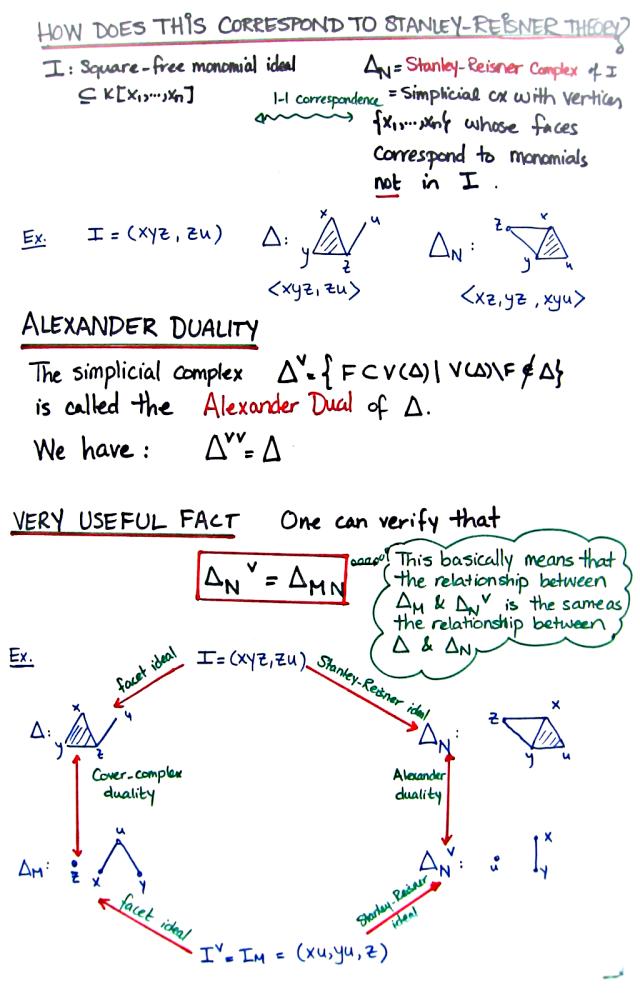 HOW DOES THIS CORRESPOND TO STANLEY-REISNER THEORY?
I: Square-free monomial ideal
⊆ K[x₁,...,xₙ]
1-1 correspondence
Δ_N = Stanley-Reisner Complex of I
= Simplicial cx with vertices
{x₁,...,xₙ} whose faces
correspond to monomials
not in I.
Ex. I = (xyz, zu)
Δ:
x
u
y
z
<xyz, zu>
Δ_N:
z
x
y
u
<xz, yz, xyu>
ALEXANDER DUALITY
The simplicial complex Δ^v = { F ⊂ V(Δ) | V(Δ)\F ∉ Δ}
is called the Alexander Dual of Δ.
We have: Δ^vv = Δ
VERY USEFUL FACT One can verify that
Δ_N^v = Δ_MN
This basically means that
the relationship between
Δ_M & Δ_N^v is the same as
the relationship between
Δ & Δ_N
Ex.
I = (xyz, zu)
facet ideal
Stanley-Reisner ideal
Δ:
x
u
y
z
Δ_N:
z
x
y
u
Cover-complex
duality
Alexander
duality
Δ_M:
z
u
x
y
Δ_N^v:
u
x
y
facet ideal
Stanley-Reisner
ideal
I^v = I_M = (xu, yu, z)